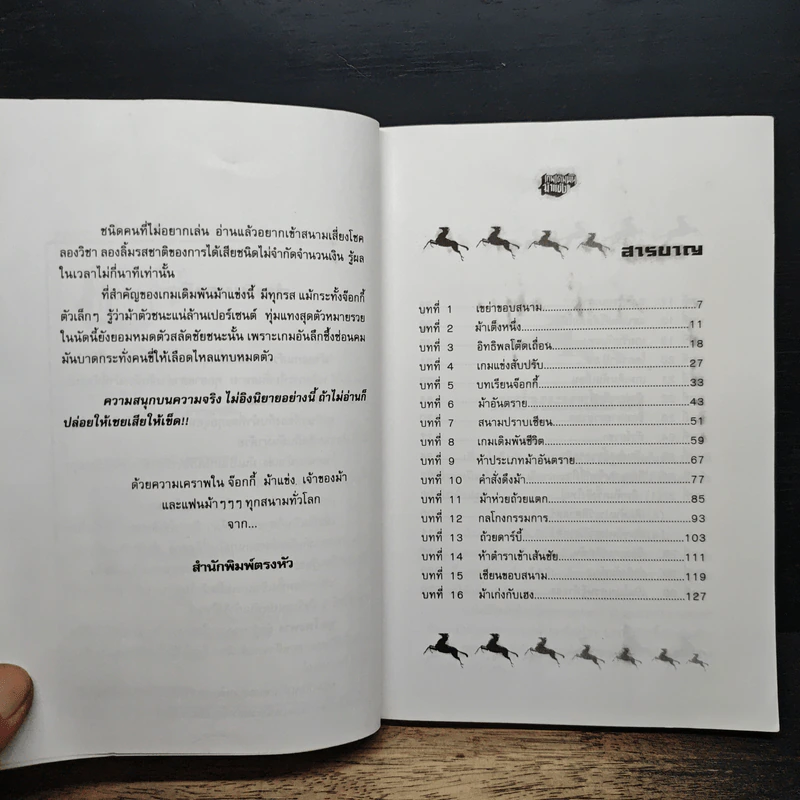 ชนิดคนที่ไม่อยากเล่น อ่านแล้วอยากเข้าสนามเสี่ยงโชค
ลองวิชา ลองลิ้มรสชาติของการได้เสียชนิดไม่จำกัดจำนวนเงิน รู้ผล
ในเวลาไม่กี่นาทีเท่านั้น
ที่สำคัญของเกมเดิมพันม้าแข่งนี้ มีทุกรส แม้กระทั่งจ๊อกกี้
ตัวเล็กๆ รู้ว่าม้าตัวชนะแน่ล้านเปอร์เซนต์ ทุ่มแทงสุดตัวหมายรวย
ในนัดนี้ยังยอมหมดตัวสลัดชัยชนะนั้น เพราะเกมอันลึกซึ้งซ่อนคม
มันบาดกระทั่งคนขี่ให้เลือดไหลแทบหมดตัว
ความสนุกบนความจริง ไม่อิงนิยายอย่างนี้ ถ้าไม่อ่านก็
ปล่อยให้เชยเสียให้เข็ด!!
ด้วยความเคารพใน จ๊อกกี้ ม้าแข่ง, เจ้าของม้า
และแฟนม้าๆๆๆ ทุกสนามทั่วโลก
จาก...
สำนักพิมพ์ตรงหัว
เกมเดิมพัน
ม้าแข่ง
สารบาญ
บทที่ 1 เขย่าขอบสนาม 7
บทที่ 2 ม้าเต็งหนึ่ง 11
บทที่ 3 อิทธิพลโต๊ดเถื่อน 18
บทที่ 4 เกมแข่งสับปรับ 27
บทที่ 5 บทเรียนจ๊อกกี้ 33
บทที่ 6 ม้าอันตราย 43
บทที่ 7 สนามปราบเซียน 51
บทที่ 8 เกมเดิมพันชีวิต 59
บทที่ 9 ห้าประเภทม้าอันตราย 67
บทที่ 10 คำสั่งดึงม้า 77
บทที่ 11 ม้าห่วยถ้วยแตก 85
บทที่ 12 กลโกงกรรมการ 93
บทที่ 13 ถ้วยดาร์บี้ 103
บทที่ 14 ห้าตำราเข้าเส้นชัย 111
บทที่ 15 เซียนขอบสนาม 119
บทที่ 16 ม้าเก่งกับเฮง 127